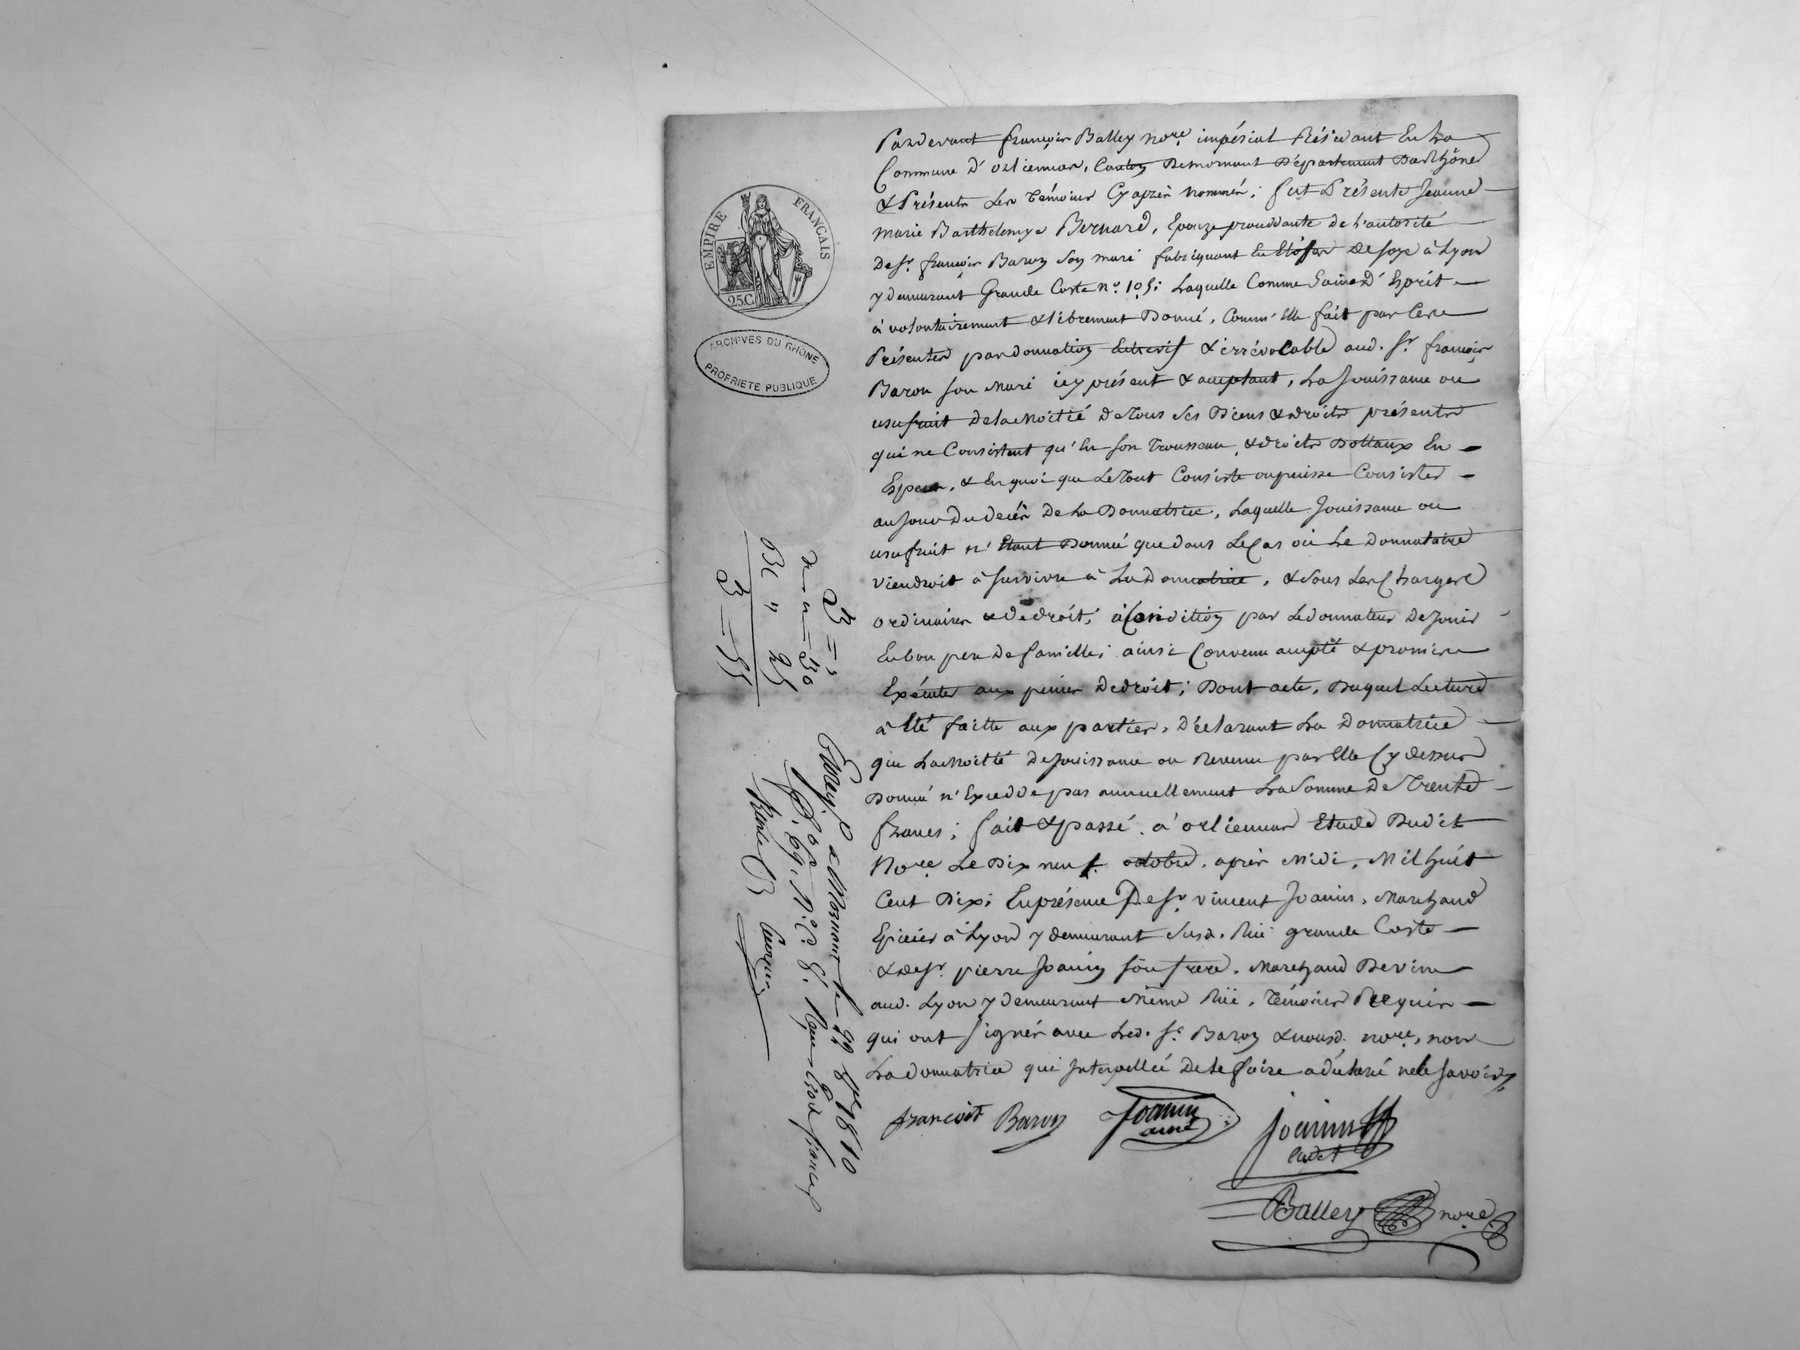 EMPIRE FRANCAIS
25.C
ARCHIVES DU RHÔNE
PROPRIETE PUBLIQUE
Pardevant françois Balley no.re impérial Résidant En La
Commune d'orliennas, Canton Demornant Département Du Rhône
& Présents Les Témoins Cy après nommés; fut Présente Jeanne
marie Barthelemye Bernard, Epouze procédante de L'autorité
De Sr. françois Baron Son mari fabriquant En Etôfes De soye à Lyon
y demeurant Grande Coste n.o 105; Laquelle Comme Saine D'Esprit
à volontairement & librement Donné, Comm'Elle fait par Ces
Présentes par donnation Entrevif & irrévocable aud. Sr. françois
Baron son Mari icy présent & acceptant, La Jouissance ou
usufruit De la Moitié De Tous Ses Biens & droits présents
qui ne Consistent qu'En son Trousseau, & droits Dottaux En
Espece, & En quoi que Le Tout Consiste ou puisse Consister
au Jour Du decès De La Donnatrice, Laquelle Jouissance ou
usufruit n'Etant Donné que dans Le Cas où Le Donnataire
viendroit à survivre à La Donnatrice, & Sous Les Charges
ordinaires & de droit; à Condition par Le donnateur De Jouir
En bon pere De famille; ainsi Convenu accepté & promis
Exécuter aux peines De droit; Dont acte, Duquel Lecture
à Eté faitte aux parties, Déclarant La Donnatrice
que La Moitié De Jouissance ou Revenu par Elle Cy dessus
Donné n'Excedde pas annuellement La Somme De Trente
francs; fait & passé à orliennas Etude Dudit
No.re Le Dix neuf octobre, après Midi, Mil huit
Cent Dix; En présence De Sr. vincent Joanin, Marchand
Epicier à Lyon y demeurant Susd. Rüe grande Coste
& De Sr. pierre Joanin son frere, Marchand De vin
aud. Lyon y demeurant Même Rüe, Témoins Requis
qui ont signés avec Led. Sr. Baron & nousd. no.re, non
La donnatrice qui Interpellée De le faire a déclaré ne le savoir
françoit Baron
Joanin
ainé
Joanin
cadet
Balley no.re
Enreg.é à Mornant le 22 8bre 1810
f.o 69, R.o C.e 6, Reçu trois francs